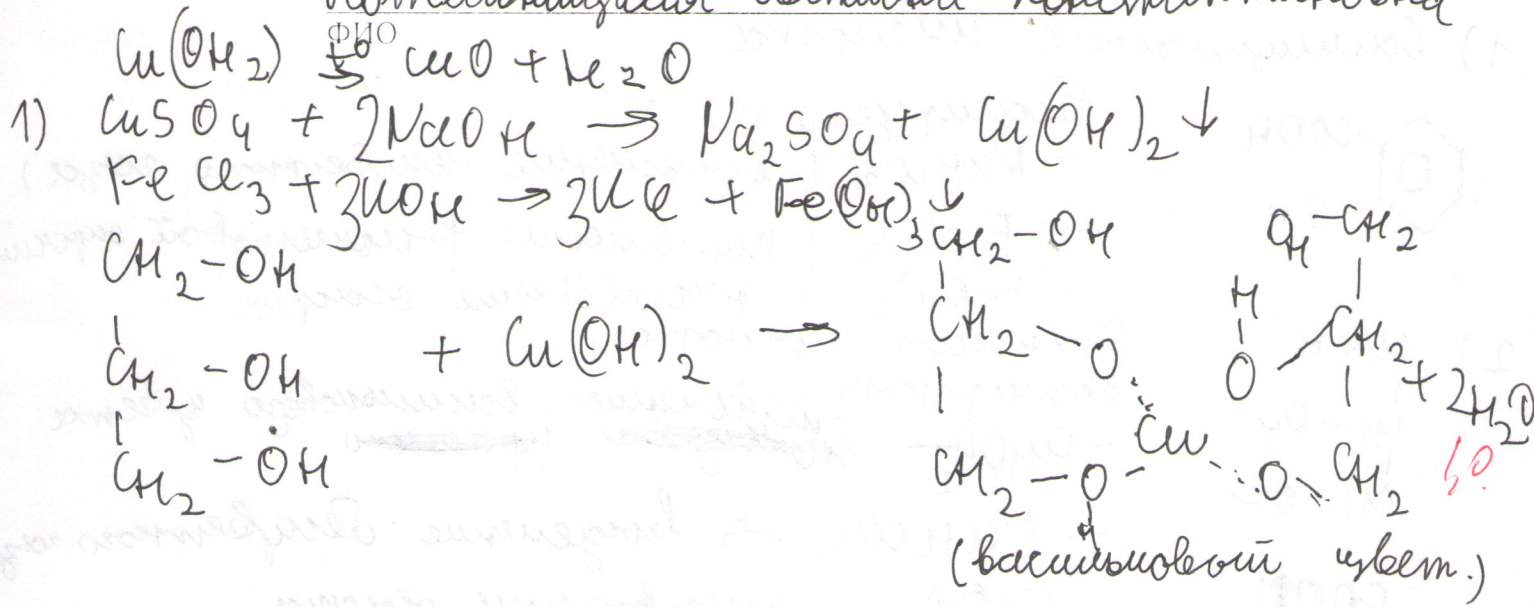 ФИО
Cu(OH2) t° → CuO + H2O
1) CuSO4 + 2NaOH → Na2SO4 + Cu(OH)2↓
FeCl3 + 3KOH → 3KCl + Fe(OH)3↓
CH2 - OH
CH2 - OH
CH2 - OH
+ Cu(OH)2 →
CH2 - OH
CH2 - O
CH2 - O
H
Cu
OH - CH2
H
O - CH2
O - CH2
+ 2H2O
1,0
(васильковый цвет.)